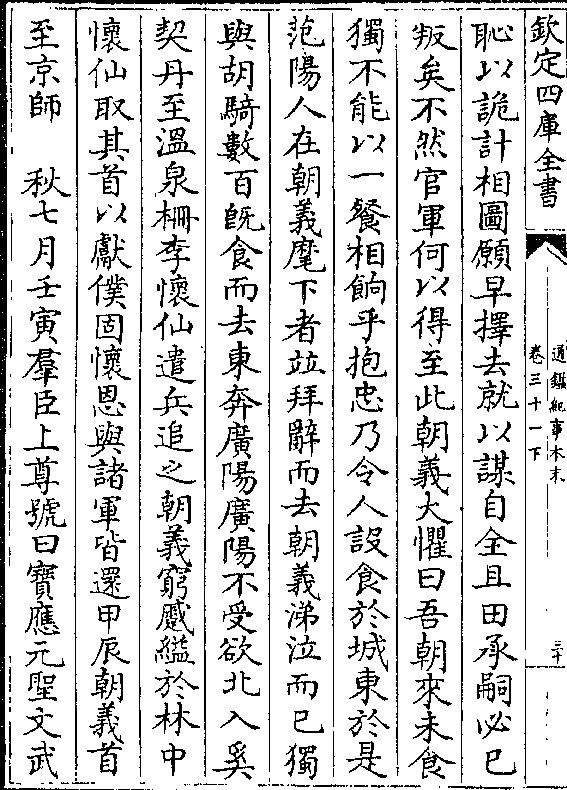 欽定四庫全書
通鑑紀事本末
卷三十一下
三十
恥以詭計相圖願早擇去就以謀自全且田承嗣必已
叛矣不然官軍何以得至此朝義大懼曰吾朝來未食
獨不能以一餐相餉乎抱忠乃令人設食於城東於是
范陽人在朝義麾下者竝拜辭而去朝義涕泣而已獨
與胡騎數百旣食而去東奔廣陽廣陽不受欲北入奚
契丹至溫泉柵李懷仙遣兵追之朝義窮蹙縊於林中
懷仙取其首以獻僕固懷恩與諸軍皆還甲辰朝義首
至京師 秋七月壬寅羣臣上尊號曰寶應元聖文武